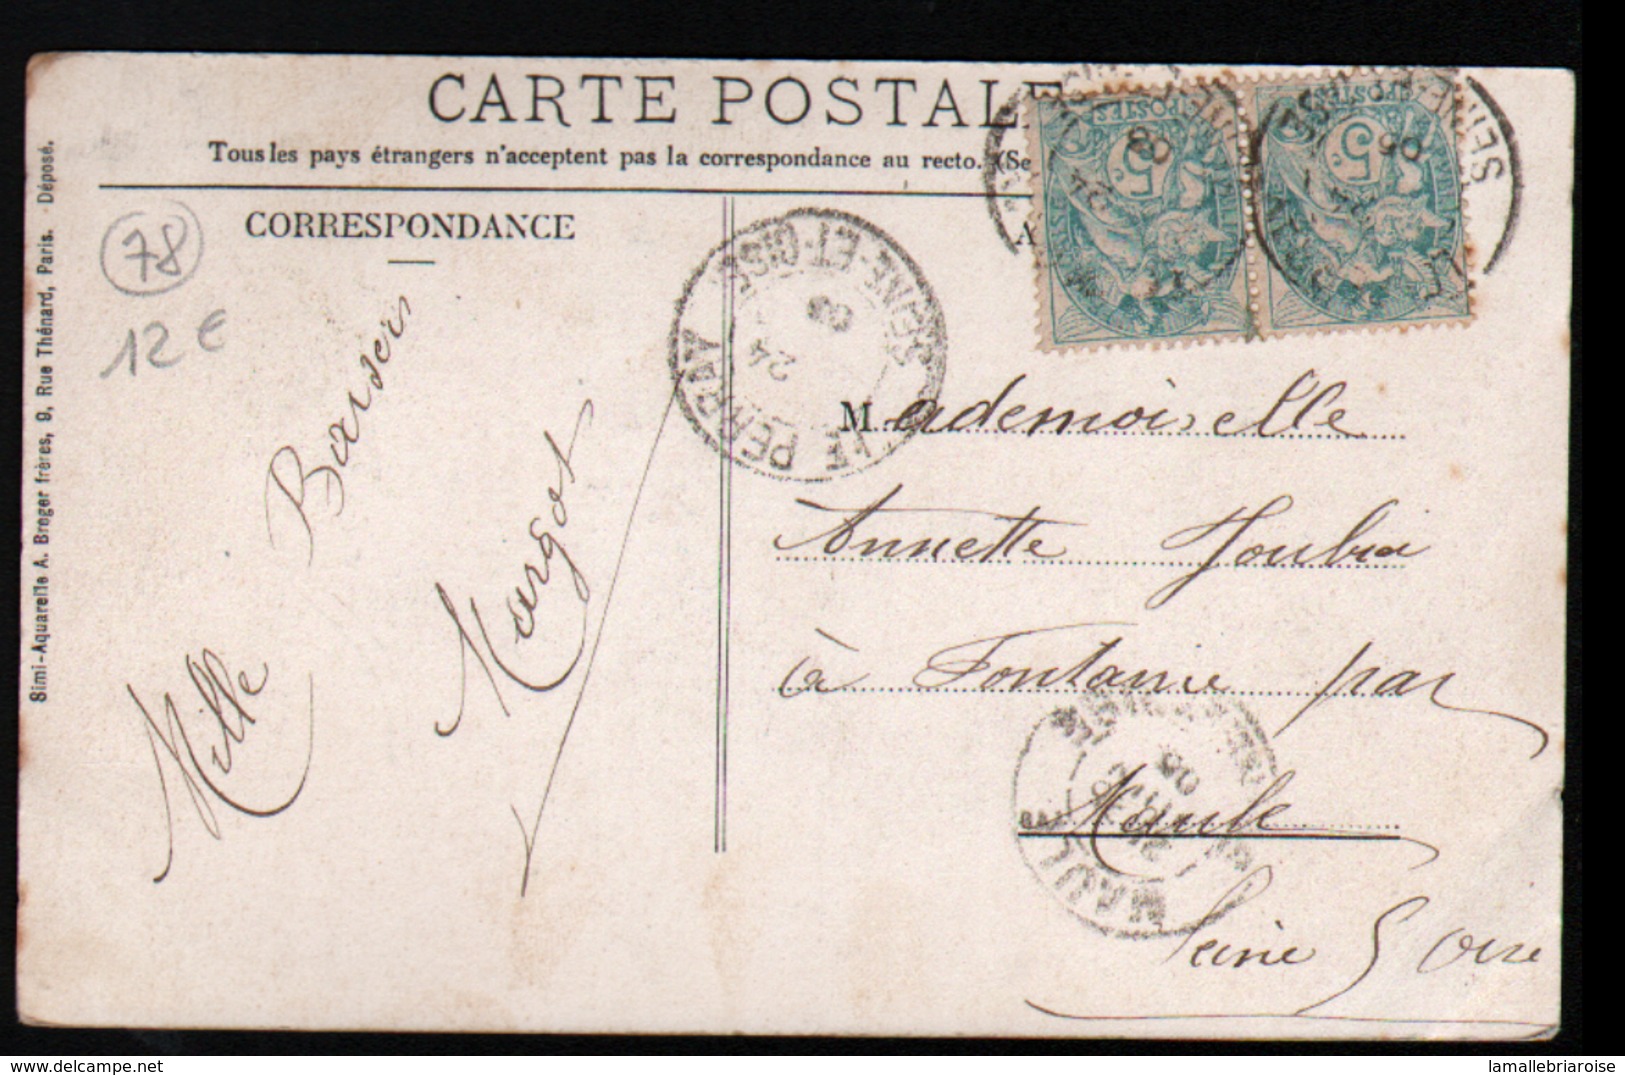 CARTE POSTALE
Tous les pays étrangers n'acceptent pas la correspondance au recto. (Se
CORRESPONDANCE
78
12 €
Simi-Aquarelle A. Breger frères, 9, Rue Thénard, Paris. Déposé.
Mille Baisers
Margot
LE PERRAY
24
SEINE-ET-OISE
POSTES
5
POSTES
5
Mademoiselle
Annette
à Fontanie par
Maule
Seine & Oise
MAULE
delcampe.net
lamallebriaroise